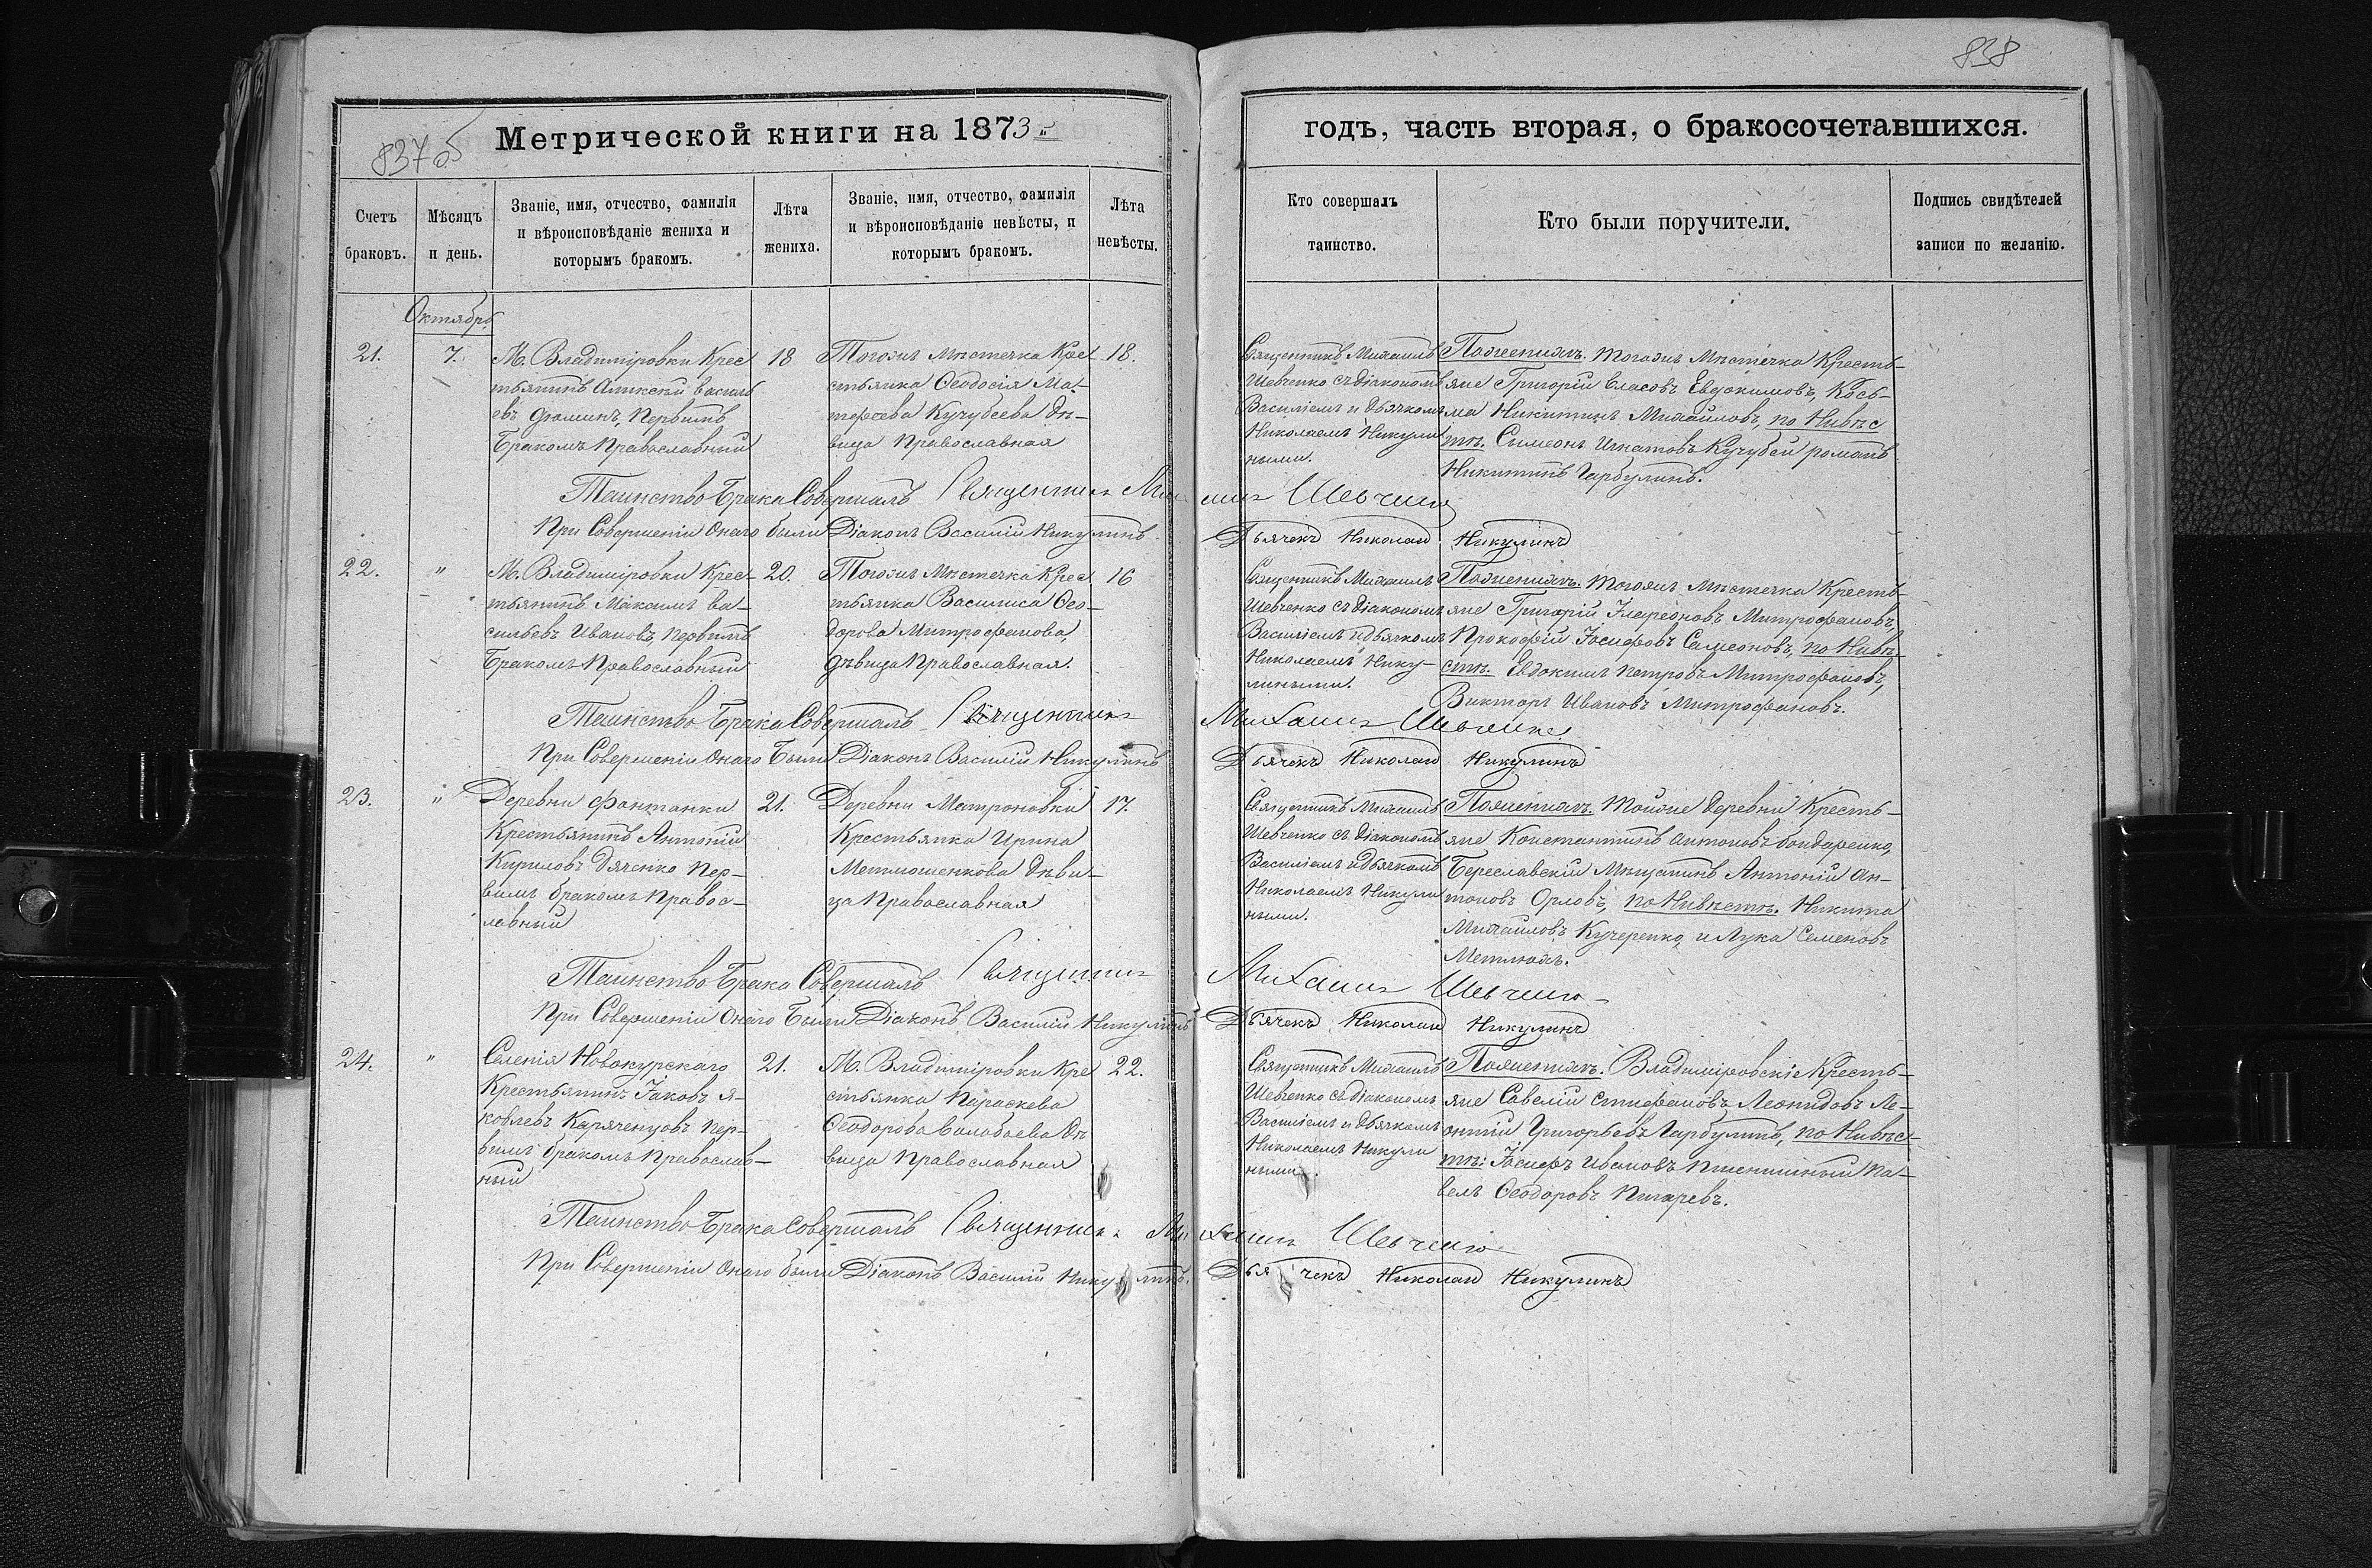 838
837 об
Метрической книги на 1873 й
годъ, часть вторая, о бракосочетавшихся.
Счетъ
браковъ.
Мѣсяцъ
и день.
Званіе, имя, отчество, фамилія
и вѣроисповѣданіе жениха и
которымъ бракомъ.
Лѣта
жениха.
Званіе, имя, отчество, фамилія
и вѣроисповѣданіе невѣсты, и
которымъ бракомъ.
Лѣта
невѣсты.
Кто совершалъ
таинство.
Кто были поручители.
Подпись свидѣтелей
записи по желанію.
Октябрь
21.
7.
М. Владиміровки Крес
тьянинъ Аликсѣй Василь
евъ Дюминъ, Первымъ
Бракомъ Православный
18
Тогожъ Мѣстечка Кре
стьянка Ѳеодосія Ма-
тѳеева Кучубеева дѣ-
вица Православная
18.
Священникъ Михаилъ
Шевченко съ діакономъ
Василіемъ и дьячкомъ
Николаемъ Никули
ными.
По женихѣ. Тогожъ Мѣстечка Кресть-
яне Григорій Власовъ Евдокимовъ, Кось-
ма Никитинъ Михайловъ, по Нивѣс
тѣ. Сымеонъ Игнатовъ Кучубей романъ
Никитинъ Гарбулинъ.
Таинство Брака Совершалъ Священникъ Михаилъ Шевченко
При Совершеніи Онаго были Діаконъ Василій Никулинъ
Дьячекъ Николай Никулинъ
22.
"
М. Владиміровки Крес-
тьянинъ Максимъ Ва-
сильевъ Ивановъ, Первымъ
Бракомъ Православный
20.
Тогожъ Мѣстечка Крес
тьянка Василиса Ѳео-
дорова Митрофанова,
дѣвица Православная.
16
Священникъ Михаилъ
Шевченко съ діакономъ
Василіемъ и дьячкомъ
Николаемъ Нику-
лиными.
По женихѣ. Тогожъ Мѣстечка Кресть-
яне Григорій Иларіоновъ Митрофановъ,
Прокофій Іосифовъ Самсоновъ, по Нивѣ-
стѣ. Евдокимъ Петровъ Митрофановъ,
Викторъ Ивановъ Митрофановъ.
Таинство Брака Совершалъ Священникъ Михаилъ Шевченко
При Совершеніи Онаго Были Діаконъ Василій Никулинъ
Дьячекъ Николай Никулинъ
23.
"
Деревни Фонтанки
Крестьянинъ Антоній
Кириловъ Дяченко Пер-
вымъ бракомъ Правос-
лавный
21.
Деревни Матроновки
Крестьянка Ирина
Метлюшенкова Дѣви-
ца Православная
17.
Священникъ Михаилъ
Шевченко съ діакономъ
Василіемъ и дьячкомъ
Николаемъ Никули
ными.
По женихѣ. Тойже деревни Кресть-
яне Константинъ Антоновъ Бондаренко,
Береславскій Мѣщанинъ Антоній Ан-
тоновъ Орловъ, по Нивѣстѣ. Никита
Михайловъ Кучеренко и Лука Семеновъ
Метлюхъ.
Таинство Брака Совершалъ Священникъ Михаилъ Шевченко
При Совершеніи Онаго Были Діаконъ Василій Никулинъ
Дьячекъ Николай Никулинъ
24.
"
Селенія Новокурскаго
Крестьянинъ Іаковъ Я-
ковлевъ Каряченцовъ Пер-
вымъ бракомъ Православ-
ный
21.
М. Владиміровки Кре
стьянка Параскева
Ѳеодорова Балабаева дѣ
вица Православная
22.
Священникъ Михаилъ
Шевченко съ діакономъ
Василіемъ и дьячкомъ
Николаемъ Никули
ными
По женихѣ. Владиміровскіе Кресть-
яне Савелій Стифановъ Леонидовъ Ле-
онтій Григорьевъ Гарбулинъ, по Нивѣс-
тѣ: Іосифъ Ивановъ Пшеничный Па-
велъ Ѳеодоровъ Пигаревъ.
Таинство Брака Совершалъ Священникъ Михаилъ Шевченко
При Совершеніи Онаго были Діаконъ Василій Никулинъ.
Дьячекъ Николай Никулинъ